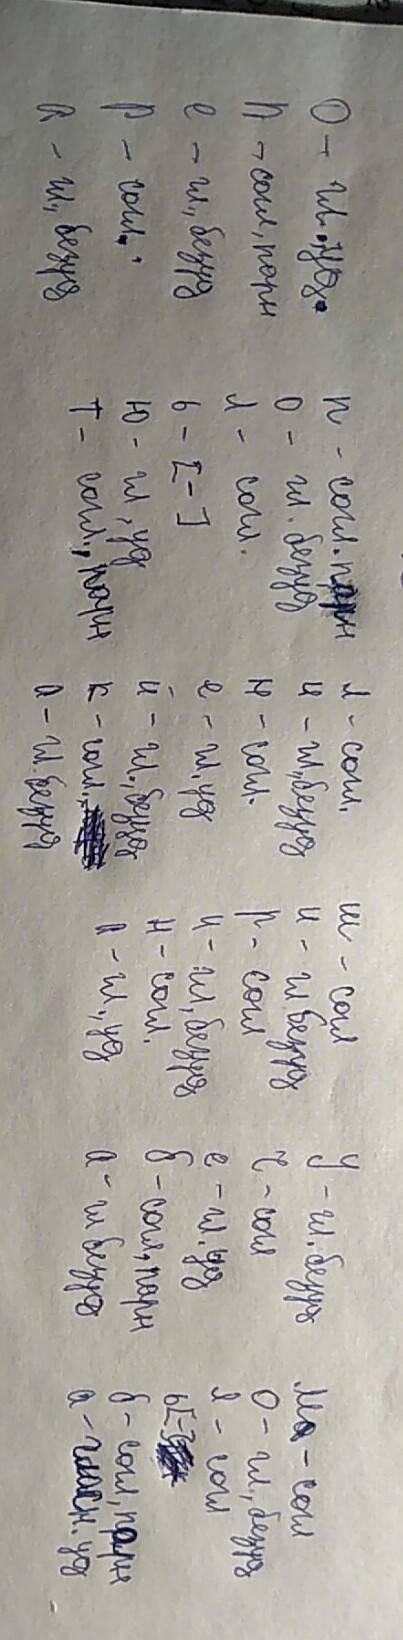 О - гл., уд.
п - согл., парн
е - гл., безуд
р - согл.
а - гл., безуд
п - согл. парн
о - гл. безуд
л - согл.
ь - [-]
ю - гл, уд
т - согл., парн
л - согл.
и - гл, безуд
н - согл.
е - гл, уд
й - гл., безуд
к - согл.,
а - гл. безуд
ш - согл
и - гл безуд
р - согл
и - гл, безуд
н - согл.
а - гл, уд
у - гл. безуд
ч - согл
е - гл. уд
б - согл, парн
а - гл безуд
м - согл
о - гл., безуд
л - согл
ь [-]
б - согл, парн
а - гласн. уд